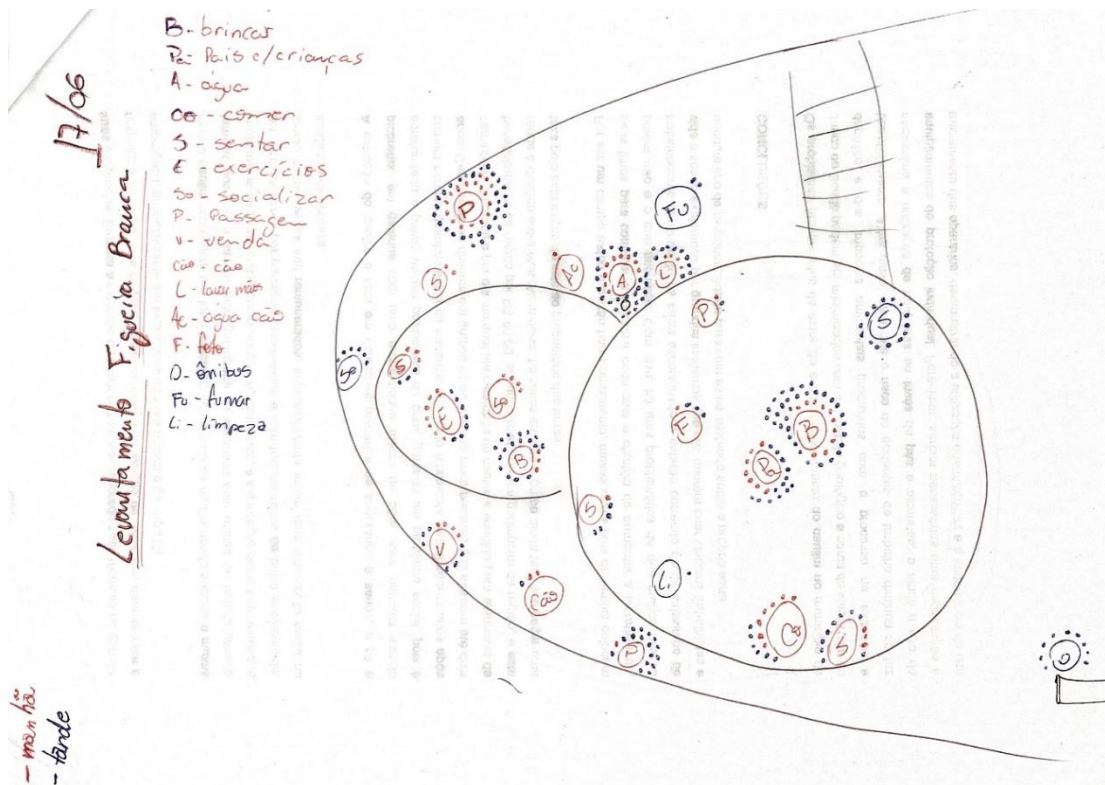 Levantamento Figueira Branca 17/06
B - brincar
Pa - Pais c/crianças
A - água
Co - comer
S - sentar
E - exercícios
So - socializar
P - Passagem
V - venda
Cão - cão
L - lavar mãos
Ac - agua cão
F - foto
O - ônibus
Fu - fumar
Li - limpeza
P
Fu
S
Ac
A
L
P
S
So
S
So
E
F
B
B
Pa
S
V
Li
Cão
Co
S
P
O
- manhã
- tarde